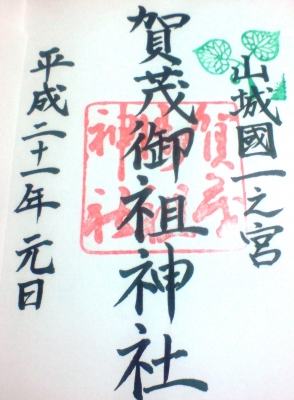 山城國一之宮
賀茂御祖神社
平成二十一年元日
賀茂
御祖
神社